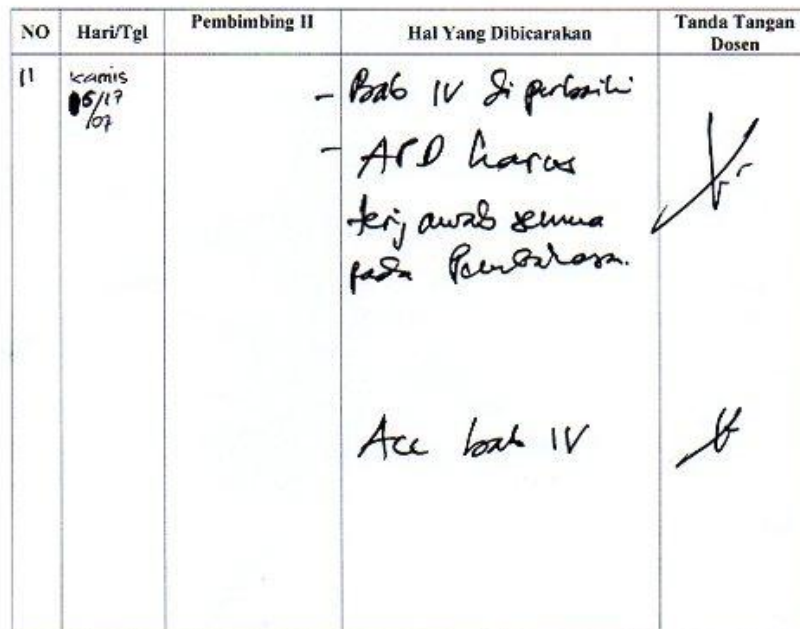 NO Hari/Tgl Pembimbing II Hal Yang Dibicarakan Tanda Tangan Dosen
11 Kamis - Bab IV diperbaiki
/17
/07
- APD harus
terjawab semua
pada Pembahasan.
Acc bab IV